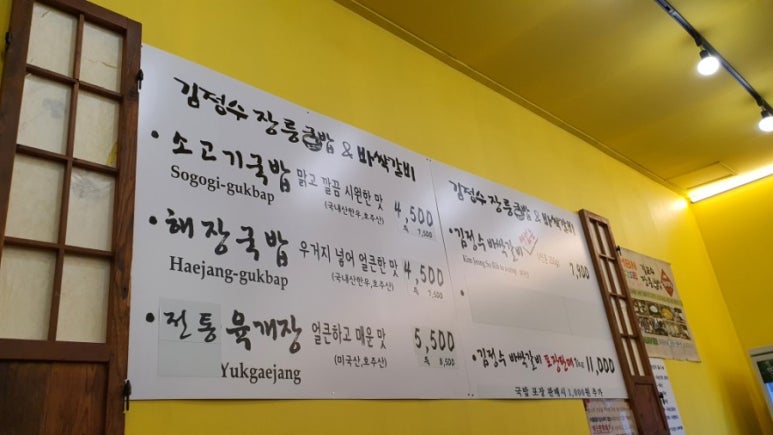 김정수 장릉국밥 & 바싹갈비
소고기국밥 맑고 깔끔 시원한 맛 4,500
Sogogi-gukbap (국내산한우,호주산) 특 7,500
해장국밥 우거지 넣어 얼큰한 맛 4,500
Haejang-gukbap (국내산한우,호주산) 특 7,500
전통 육개장 얼큰하고 매운 맛 5,500
Yukgaejang (미국산,호주산) 특 8,500
김정수 장릉국밥 & 바싹갈비
김정수 바싹갈비 7,900
Kim Jeong Su
김정수 바싹갈비 포장판매 1kg 11,000
국밥 포장 판매시 1,000원 추가